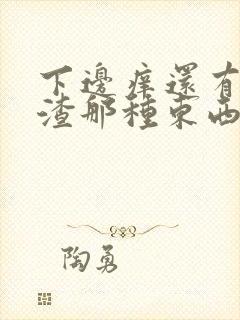 下邊痒還有
渣那種東西
陶勇